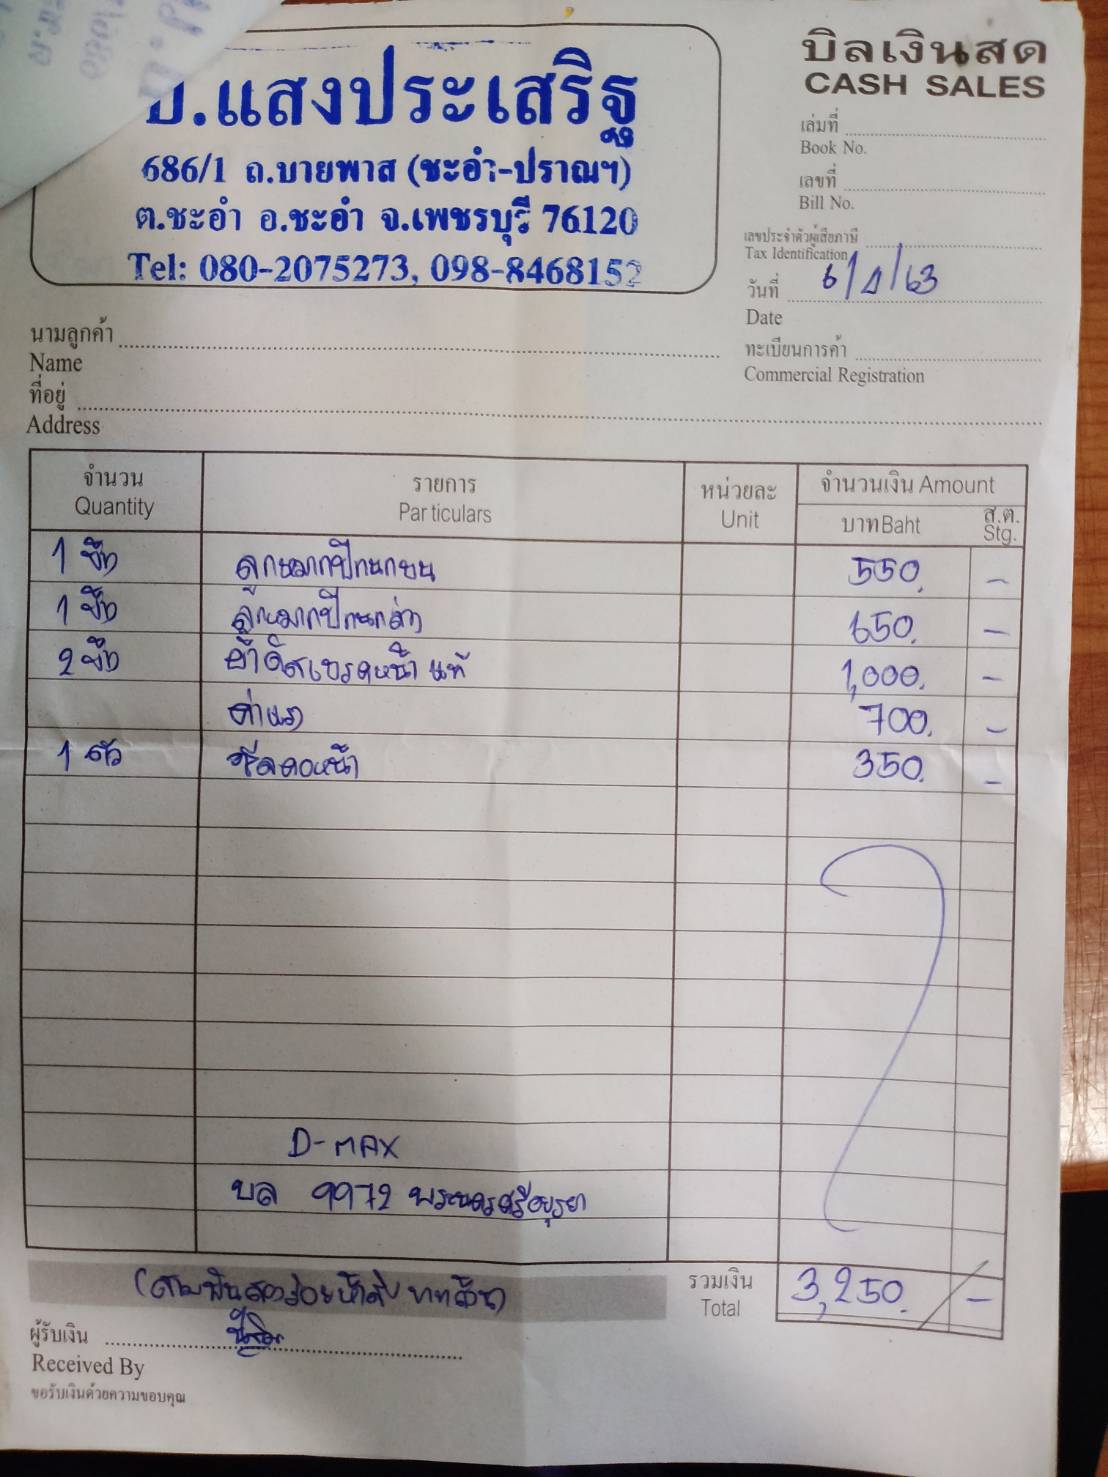 บิลเงินสด
CASH SALES
ป.แสงประเสริฐ
686/1 ถ.บายพาส (ชะอำ-ปราณฯ)
ต.ชะอำ อ.ชะอำ จ.เพชรบุรี 76120
Tel: 080-2075273, 098-8468152
เล่มที่
Book No.
เลขที่
Bill No.
เลขประจำตัวผู้เสียภาษี
Tax Identification
วันที่ 6/1/63
Date
ทะเบียนการค้า
Commercial Registration
นามลูกค้า
Name
ที่อยู่
Address
จำนวน รายการ หน่วยละ จำนวนเงิน Amount
Quantity Particulars Unit บาท Baht ส.ต. Stg.
1 ลูกหมากปีกนกบน 550. -
1 ลูกหมากปีกนกล่าง 650. -
2 ผ้าดิสเบรคหน้า แท้ 1,000. -
ค่าแรง 700. -
1 ตัว ซีลคอหน้า 350. -
D-MAX
บล 9972 พระนครศรีอยุธยา
(สามพันสองร้อยห้าสิบบาทถ้วน) รวมเงิน 3,250. -
Total
ผู้รับเงิน
Received By
ขอรับเงินด้วยความขอบคุณ